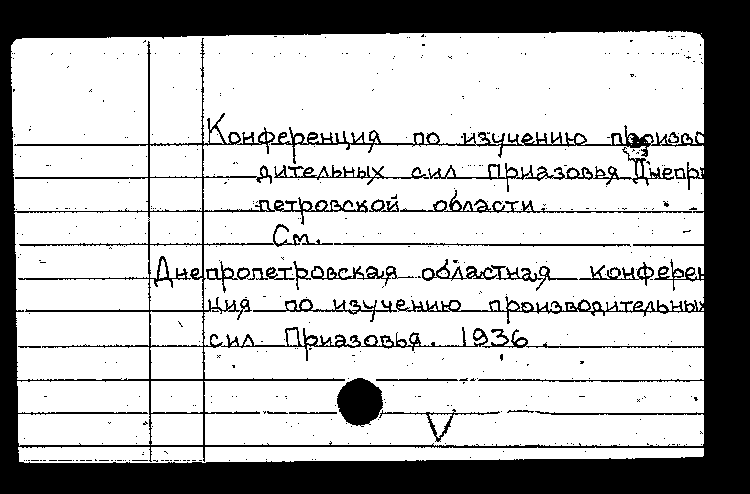 Конференция по изучению произво
дительных сил Приазовья Днепро
петровской области.
См.
Днепропетровская областная конферен
ция по изучению производительных
сил Приазовья. 1936.
V